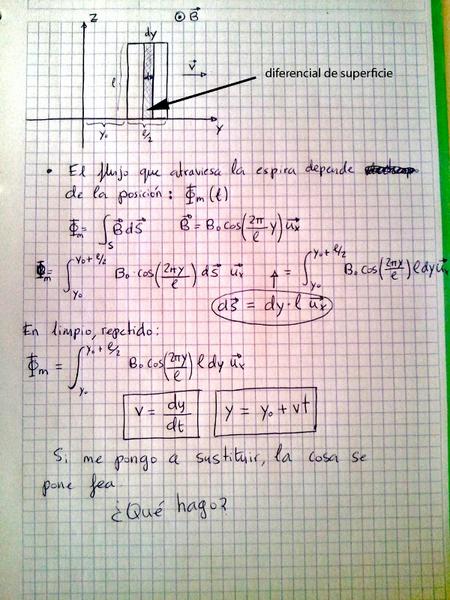 Z
⊙ B⃗
dy
diferencial de superficie
v⃗
l
y₀
l/2
Y
• El flujo que atraviesa la espira depende
de la posición: Φm(t)
Φm = ∫S B⃗ dS⃗ B⃗ = B₀ cos(2π/l y) u⃗x
Φm = ∫y₀^(y₀+l/2) B₀ · cos(2πy/l) dS⃗ u⃗x = ∫y₀^(y₀+l/2) B₀ cos(2πy/l) l dy u⃗x
dS⃗ = dy · l u⃗x
En limpio, repetido:
Φm = ∫y₀^(y₀+l/2) B₀ cos(2πy/l) l dy u⃗x
v = dy/dt y = y₀ + vt
Si me pongo a sustituir, la cosa se
pone fea
¿Qué hago?